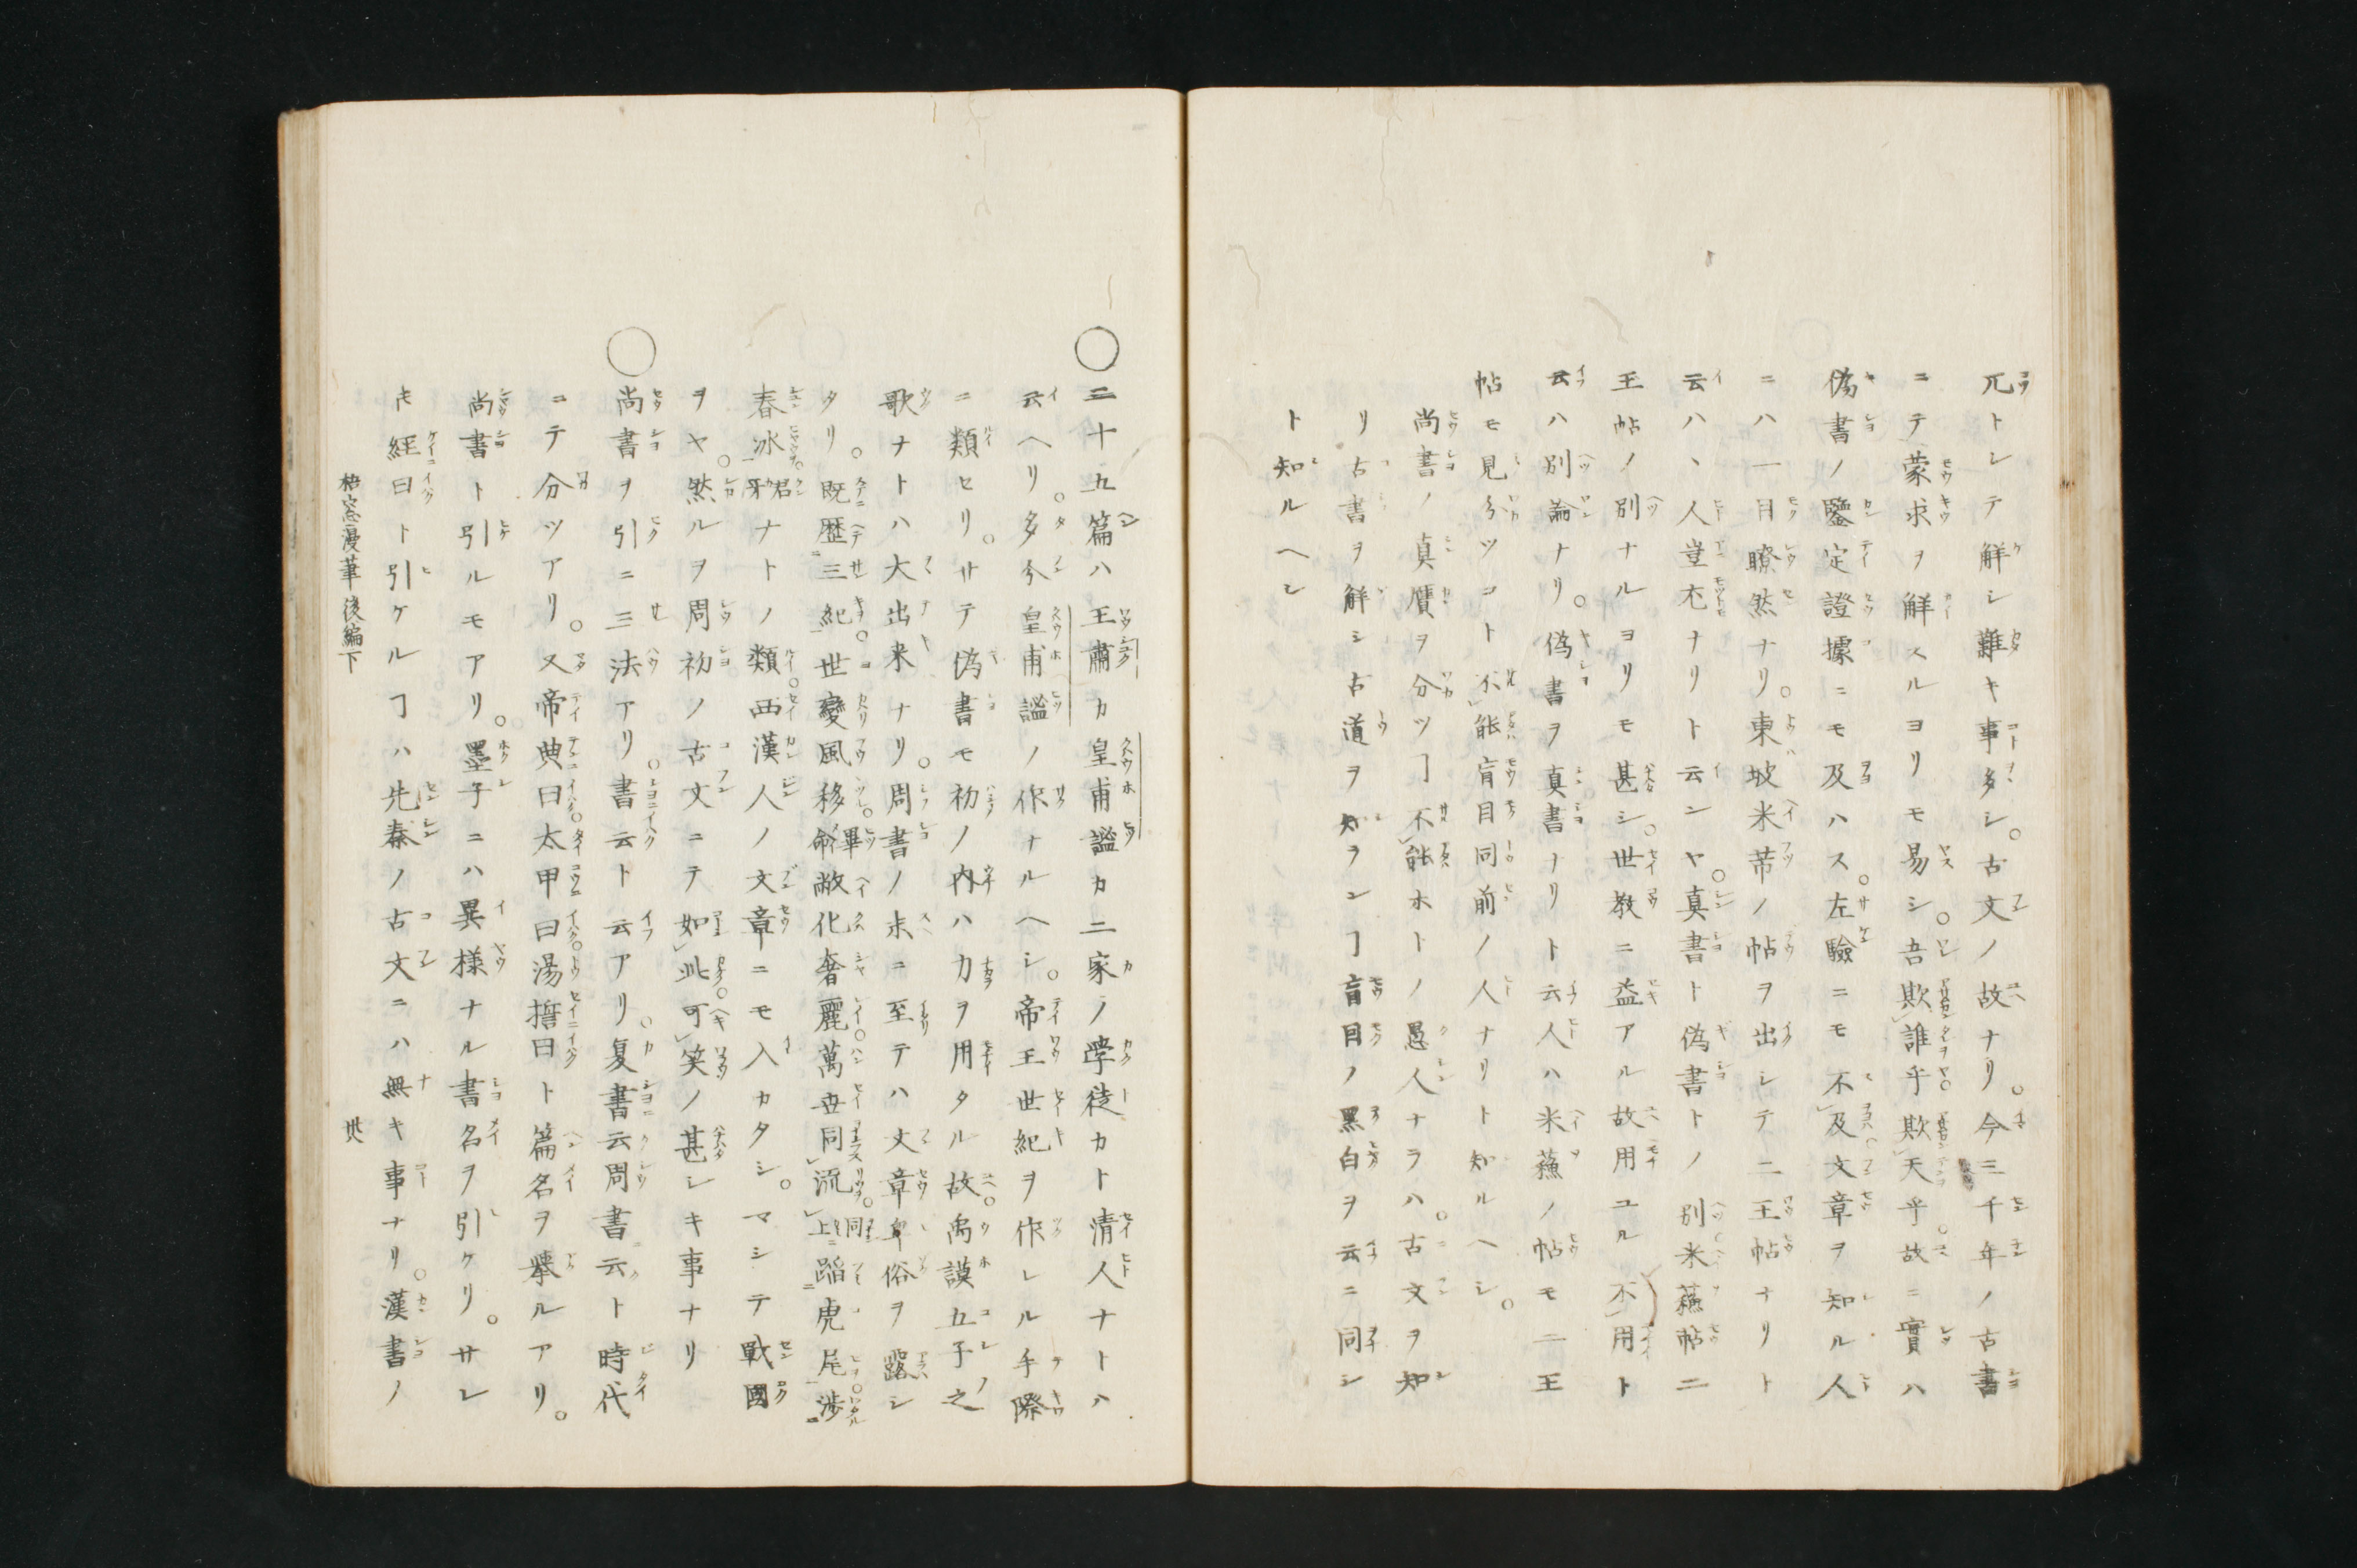 兀トシテ解シ難キ事多シ。古文ノ故ナリ。今三千年ノ古書
ニテ蒙求ヲ解スルヨリモ易シ。吾欺誰乎欺天乎故ニ實ハ
偽書ノ鑒定證據ニモ及ハス。左驗ニモ不及文章ヲ知ル人
ニハ一目瞭然ナリ。東坡米芾ノ帖ヲ出シテ二王帖ナリト
云ハヽ人豈尤ナリト云ンヤ。真書ト偽書トノ別米蘓帖二
王帖ノ別ナルヨリモ甚シ。世教ニ益アル故用ユル不用ト
云ハ別論ナリ。偽書ヲ真書ナリト云人ハ米蘓ノ帖モ二王
帖モ見分ツコト不能盲目同前ノ人ナリト知ルヘシ。
尚書ノ真贋ヲ分ツヿ不能ホトノ愚人ナラハ。古文ヲ知
リ古書ヲ解シ古道ヲ知ランヿ盲目ノ黒白ヲ云ニ同シ
ト知ルヘシ
○二十五篇ハ王肅カ皇甫謐カ二家ノ學徒カト清人ナトハ
云ヘリ。多分皇甫謐ノ作ナルヘシ。帝王世紀ヲ作レル手際
ニ類セリ。サテ偽書モ初ノ内ハ力ヲ用タル故。禹謨五子之
歌ナトハ大出来ナリ。周書ノ末ニ至テハ文章卑俗ヲ露シ
タリ。既歴三紀。世變風移。畢命敝化奢麗。萬世同流。同上蹈虎尾。渉
春冰。君牙ナトノ類。西漢人ノ文章ニモ入カタシ。マシテ戰國
ヲヤ。然ルヲ周初ノ古文ニテ如此。可笑ノ甚シキ事ナリ
○尚書ヲ引ニ三法アリ。書云ト云アリ。夏書云周書云ト時代
ニテ分ツアリ。又帝典曰。太甲曰。湯誓曰ト篇名ヲ擧ルアリ。
尚書ト引ルモアリ。墨子ニハ異様ナル書名ヲ引ケリ。サレ
𪜈經曰ト引ケルヿハ先秦ノ古文ニハ無キ事ナリ。漢書ノ
梧窓漫筆後編下